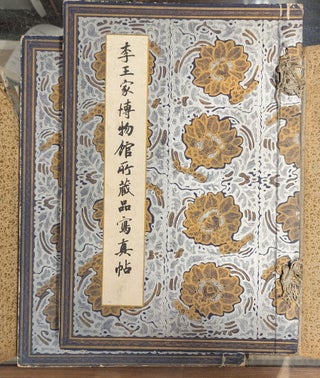 李王家博物館所藏品寫真帖